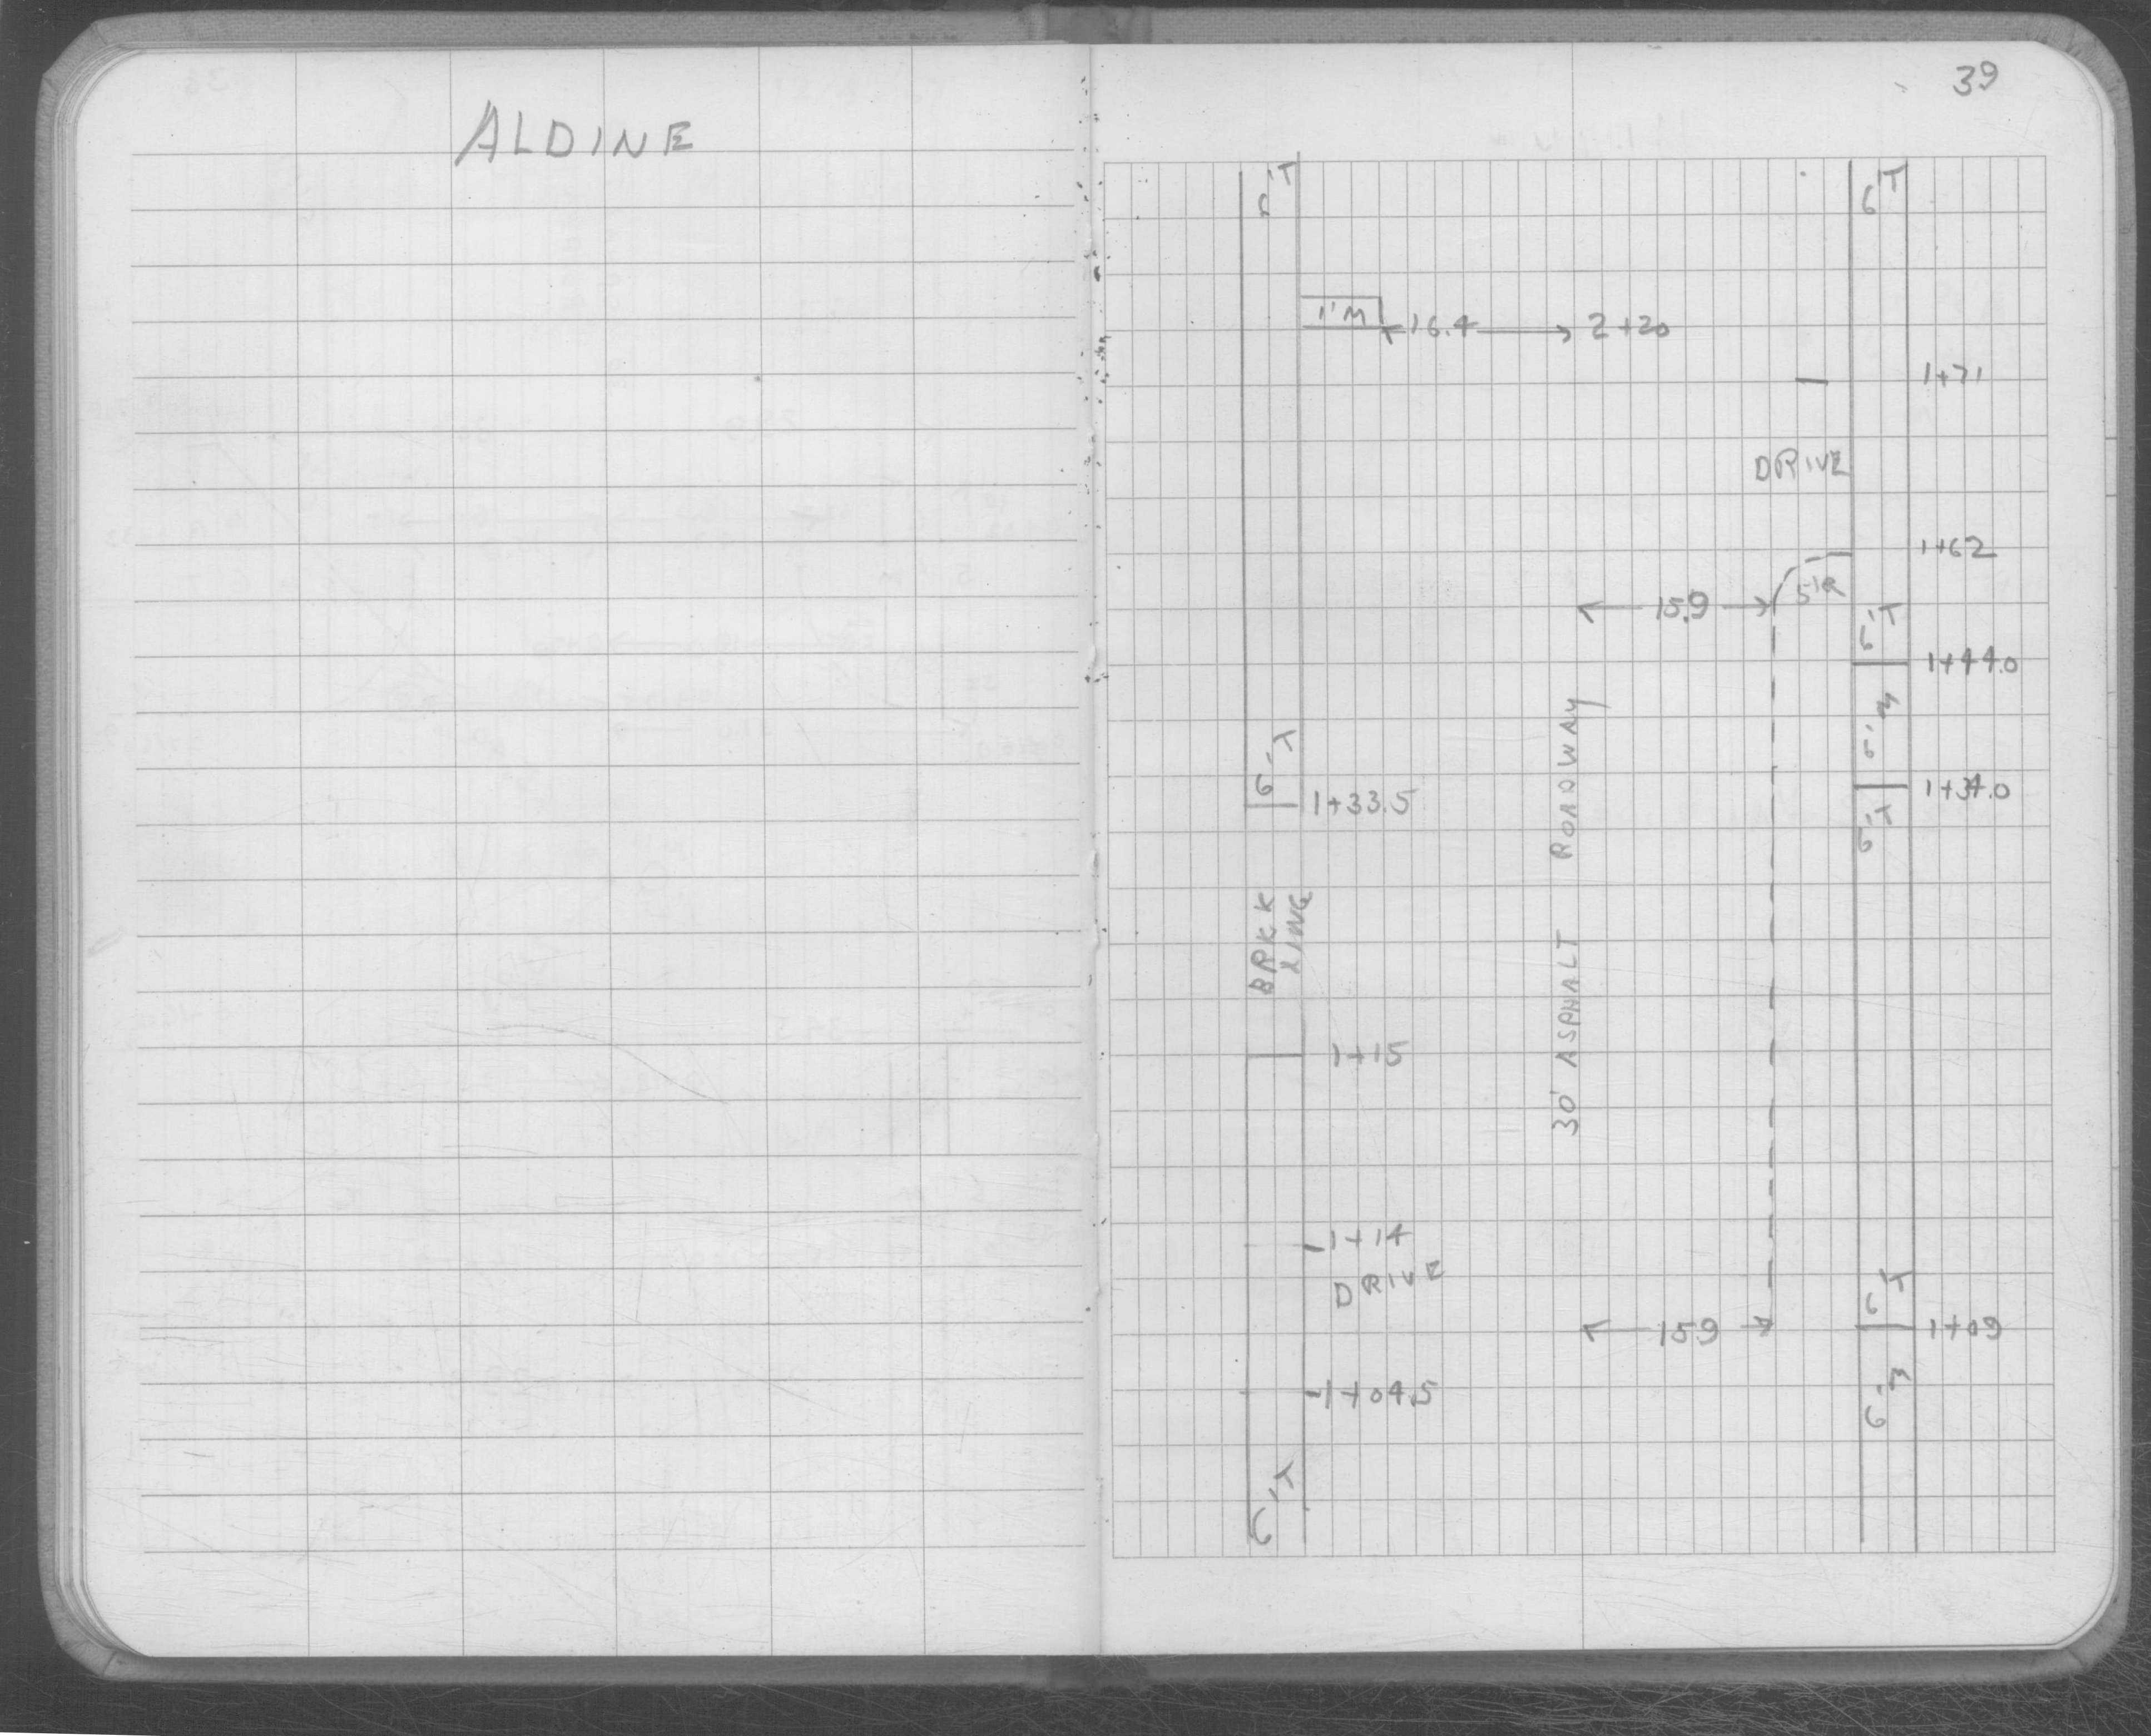 ALDINE
39
6'T
6'T
1'M
16.4
2+20
1+71
DRIVE
1+62
5'R
15.9
6'T
1+44.0
6'M
6'T
1+33.5
1+34.0
6'T
30' ASPHALT ROADWAY
BRKK
XING
1+15
1+14
DRIVE
6'T
15.9
1+09
1+04.5
6'M
6'T